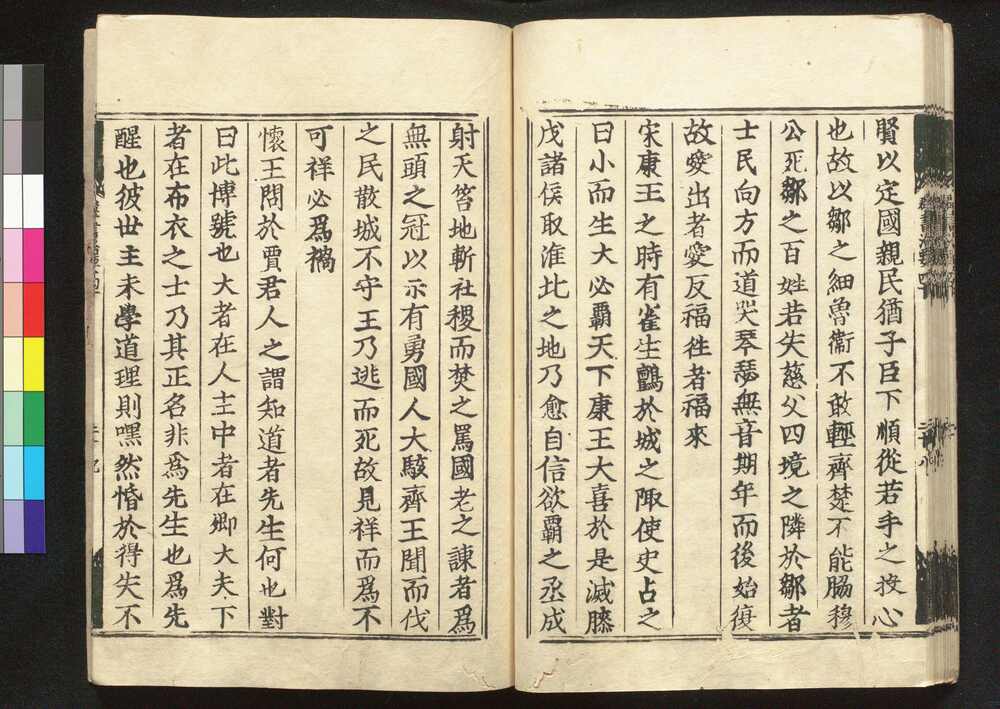 賢以定國親民猶子臣下順從若手之投心
也故以鄒之細魯衞不敢輕齊楚不能脇穆
公死鄒之百姓若失慈父四境之隣於鄒者
士民向方而道哭琴瑟無音期年而後始復
故愛出者愛反福徃者福來
宋康王之時有雀生鸇於城之陬使史占之
曰小而生大必霸天下康王大喜於是滅滕
戊諸侯取淮北之地乃愈自信欲霸之丞成
射天笞地斬社稷而焚之罵國老之諫者爲
無頭之冠以示有勇國人大駭齊王聞而伐
之民散城不守王乃逃而死故見祥而爲不
可祥必爲禍
懷王問於賈君人之謂知道者先生何也對
曰此博號也大者在人主中者在卿大夫下
者在布衣之士乃其正名非爲先生也爲先
醒也彼世主未學道理則嘿然惛於得失不